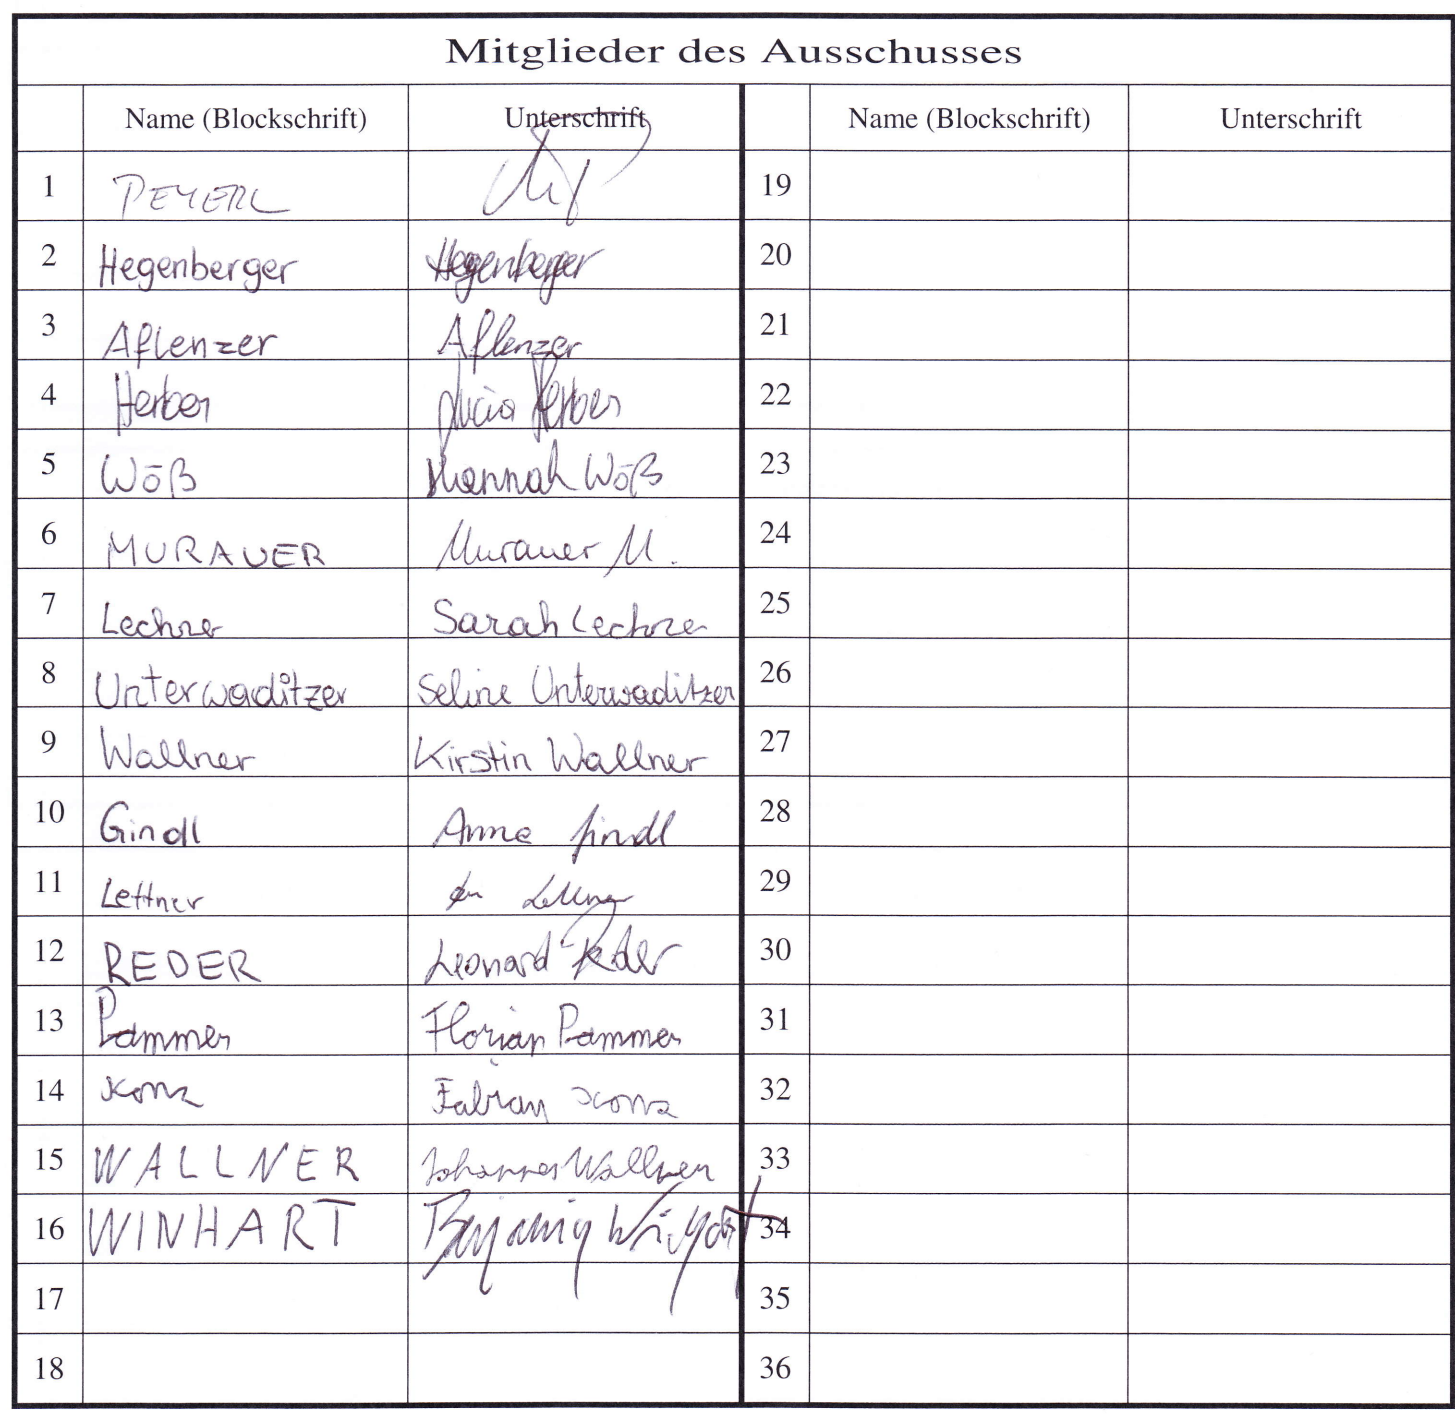 Mitglieder des Ausschusses
Name (Blockschrift) Unterschrift Name (Blockschrift) Unterschrift
1 PEYERL 19
2 Hegenberger Hegenberger 20
3 Aflenzer Aflenzer 21
4 Herber Lucia Herber 22
5 Wöß Hannah Wöß 23
6 MURAUER Murauer M. 24
7 Lechner Sarah Lechner 25
8 Unterwaditzer Seline Unterwaditzer 26
9 Wallner Kirstin Wallner 27
10 Gindl Anne Gindl 28
11 Lettner Lettner 29
12 REDER Leonard Reder 30
13 Pammer Florian Pammer 31
14 Fabian 32
15 WALLNER Johannes Wallner 33
16 WINHART Benjamin Winhart 34
17 35
18 36